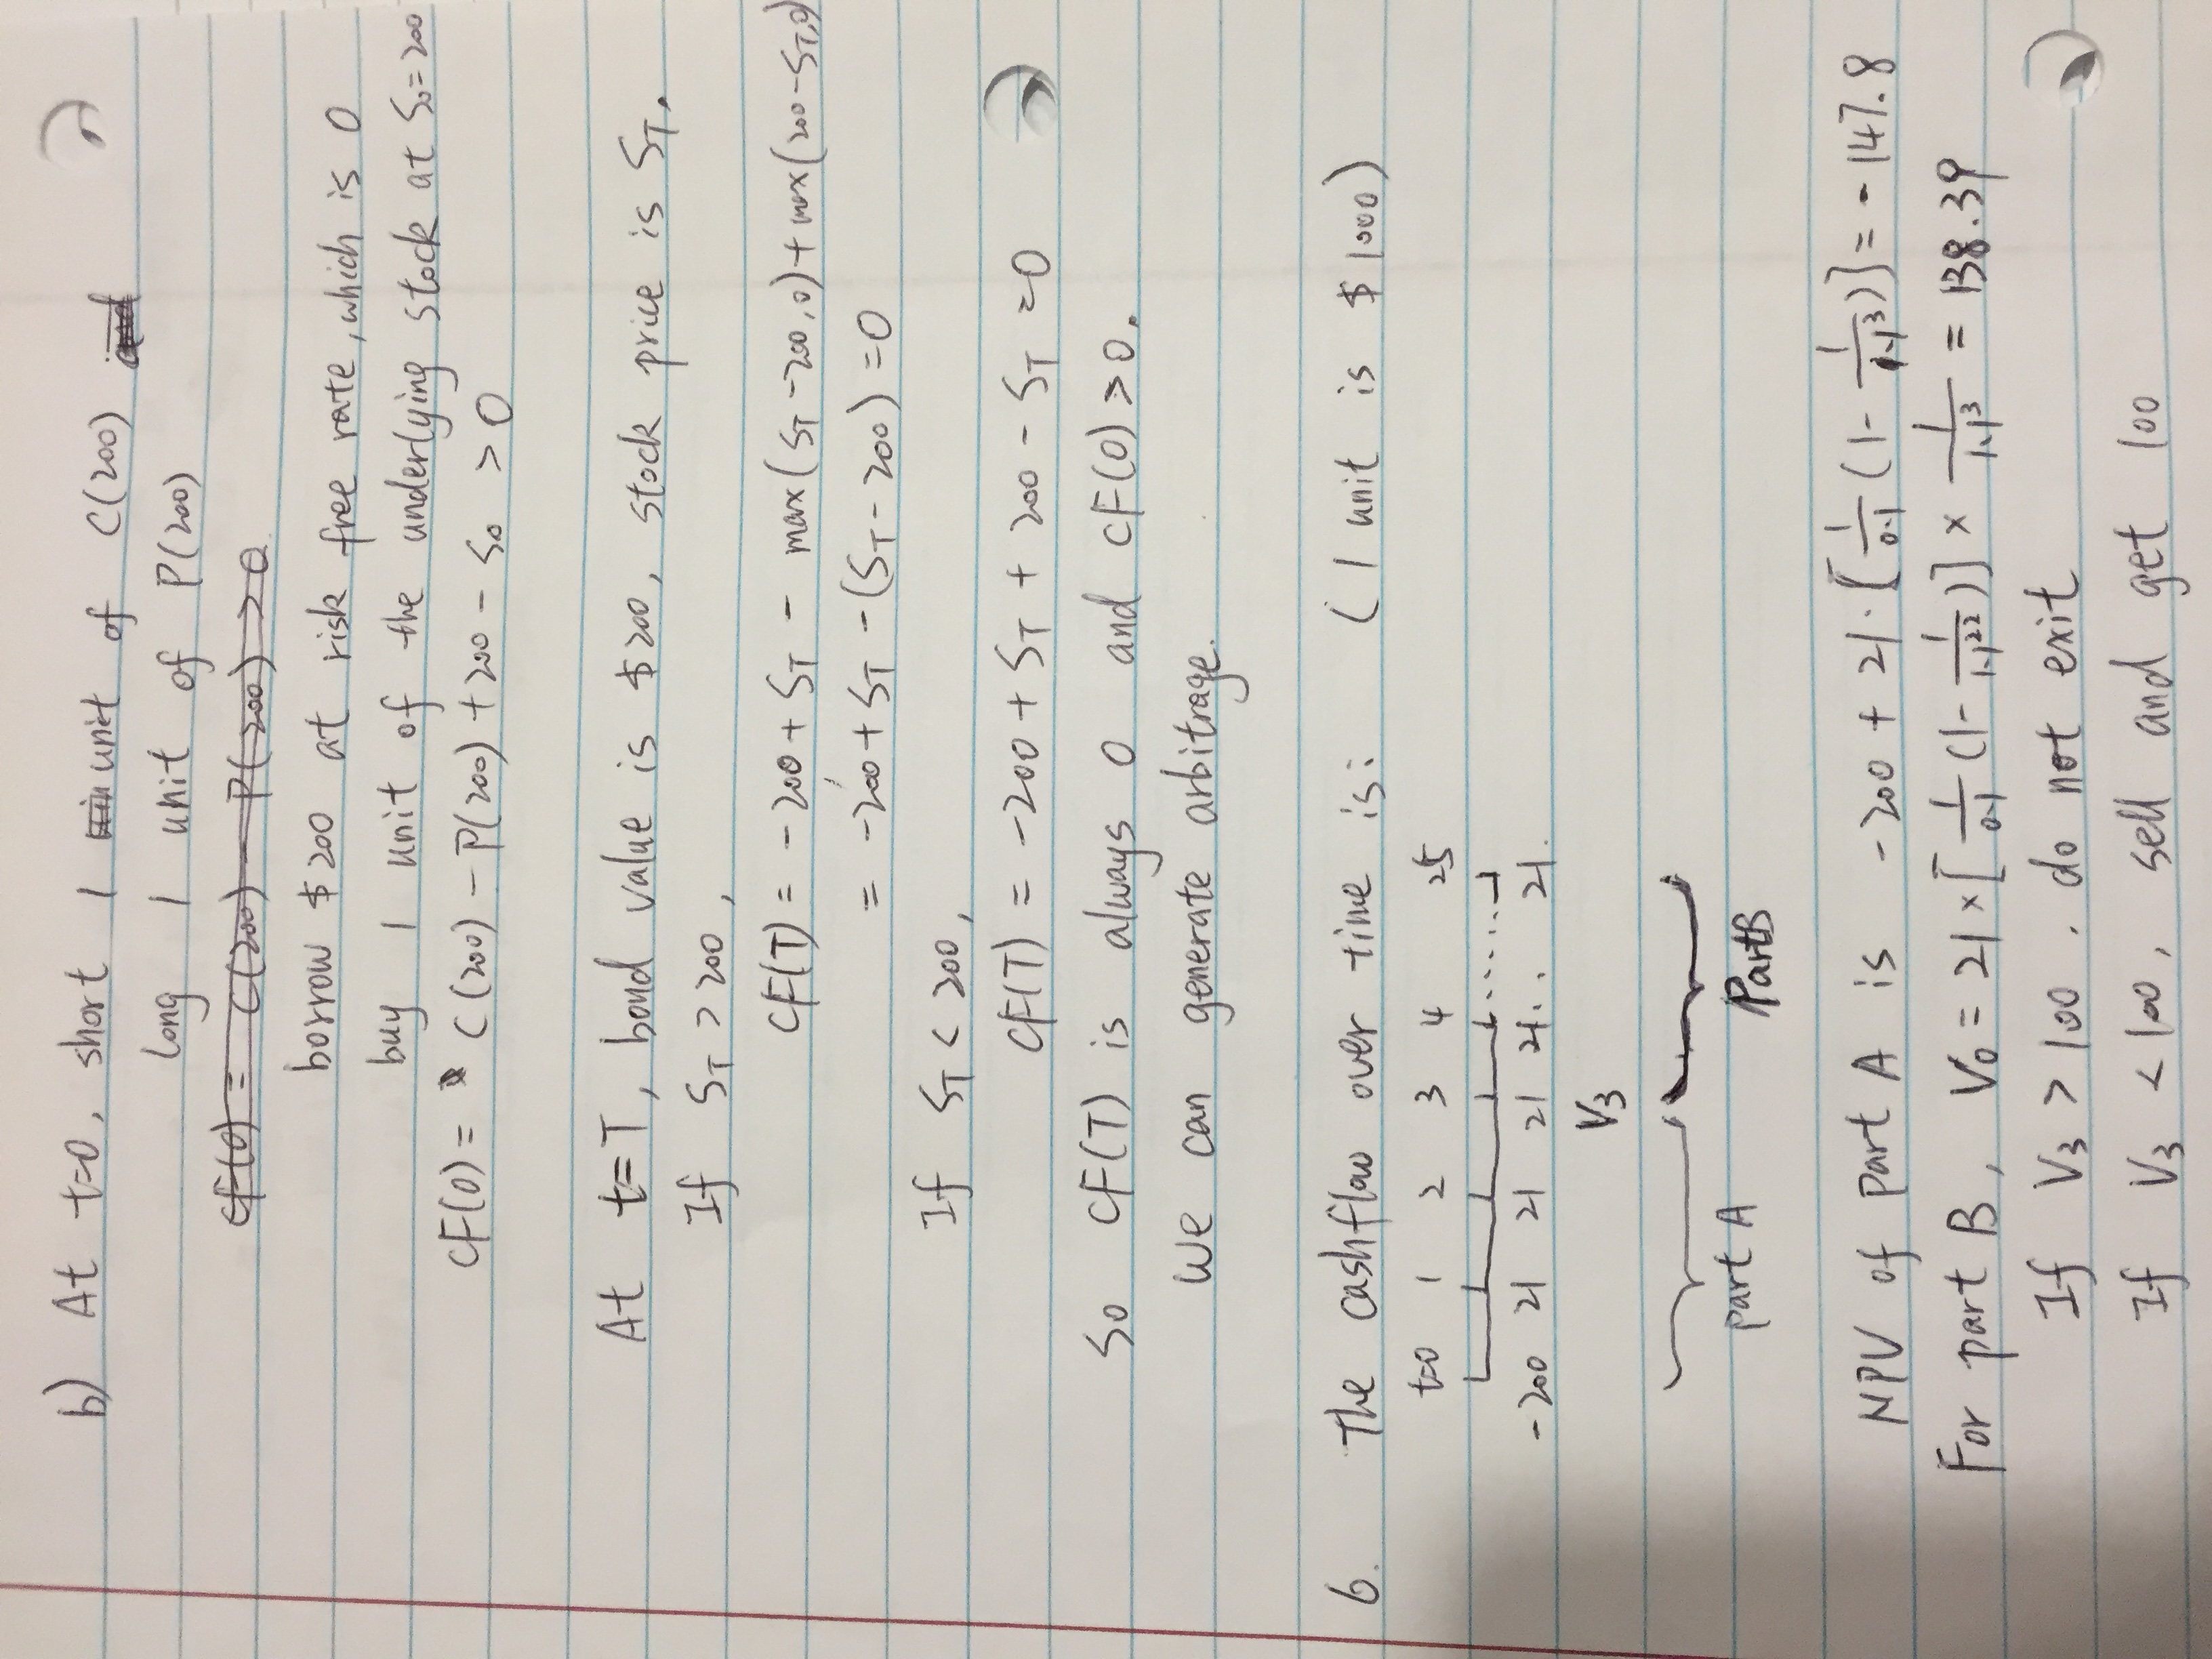 b) At t=0, short 1 unit of C(200)
long 1 unit of P(200)
CF(0) = C(200) - P(200) > 0
borrow $200 at risk free rate, which is 0
buy 1 unit of the underlying stock at S₀=200
CF(0) = C(200) - P(200) + 200 - S₀ > 0
At t=T, bond value is $200, stock price is S_T.
If S_T > 200,
CF(T) = -200 + S_T - max(S_T-200,0) + max(200-S_T,0)
= -200 + S_T - (S_T - 200) = 0
If S_T < 200,
CF(T) = -200 + S_T + 200 - S_T = 0
So CF(T) is always 0 and CF(0) > 0.
We can generate arbitrage.
6. The cashflow over time is: (1 unit is $1000)
t=0 1 2 3 4 25
-200 21 21 21 21.. 21.
V₃
part A PartB
NPV of part A is -200 + 21·[1/0.1 (1 - 1/1.1³)] = -147.8
For part B, V₀ = 21 × [1/0.1 (1 - 1/1.1²²)] × 1/1.1³ = 138.39
If V₃ > 100, do not exit
If V₃ < 100, sell and get 100